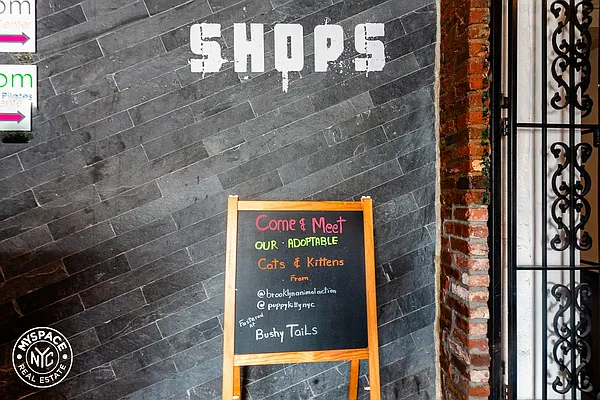 om
Center
SHOPS
om
Pilates
Center
Come & Meet
OUR · ADOPTABLE
Cats & Kittens
From
@brooklynanimalaction
@puppykittynyc
Fostered
at
Bushy TaiLs
MYSPACE
NYC
REAL ESTATE